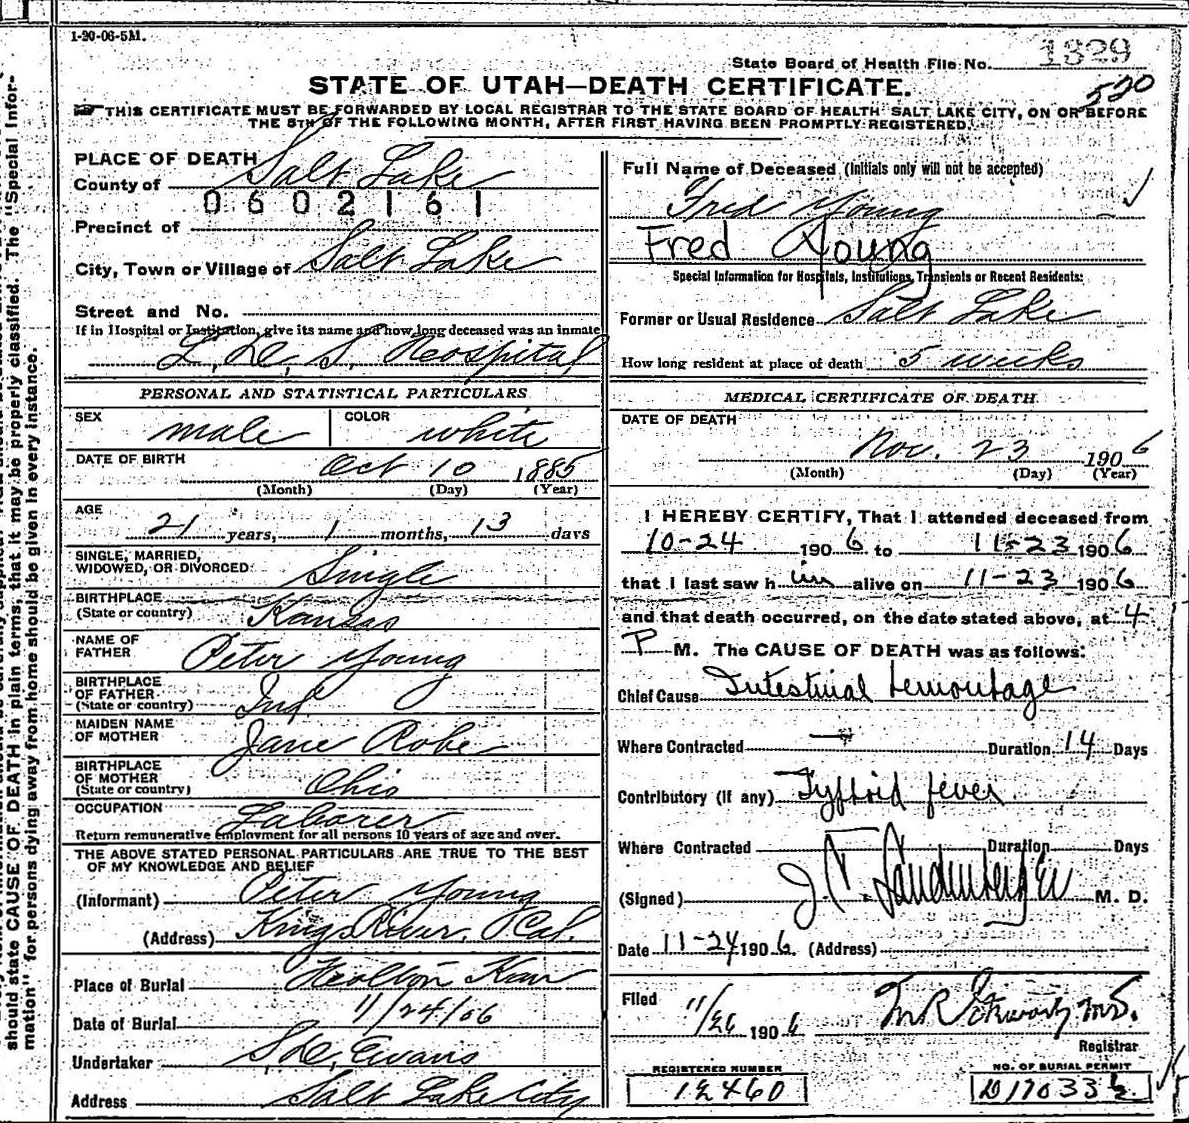 1-20-06-5M.
State Board of Health File No. 1329
520
STATE OF UTAH—DEATH CERTIFICATE.
THIS CERTIFICATE MUST BE FORWARDED BY LOCAL REGISTRAR TO THE STATE BOARD OF HEALTH SALT LAKE CITY, ON OR BEFORE
THE 5TH OF THE FOLLOWING MONTH, AFTER FIRST HAVING BEEN PROMPTLY REGISTERED.
PLACE OF DEATH
County of Salt Lake
0602161
Precinct of
City, Town or Village of Salt Lake
Street and No.
If in Hospital or Institution, give its name and how long deceased was an inmate
L. D. S. Hospital
Full Name of Deceased (Initials only will not be accepted)
Fred Young
Fred Young
Special Information for Hospitals, Institutions, Transients or Recent Residents:
Former or Usual Residence Salt Lake
How long resident at place of death 5 weeks
PERSONAL AND STATISTICAL PARTICULARS
SEX male COLOR white
DATE OF BIRTH Oct 10 1885
(Month) (Day) (Year)
AGE
21 years, 1 months, 13 days
SINGLE, MARRIED,
WIDOWED, OR DIVORCED Single
BIRTHPLACE
(State or country) Kansas
NAME OF
FATHER Peter Young
BIRTHPLACE
OF FATHER
(State or country) Ind
MAIDEN NAME
OF MOTHER Jane Robe
BIRTHPLACE
OF MOTHER
(State or country) Ohio
OCCUPATION Laborer
Return remunerative employment for all persons 10 years of age and over.
THE ABOVE STATED PERSONAL PARTICULARS ARE TRUE TO THE BEST
OF MY KNOWLEDGE AND BELIEF
(Informant) Peter Young
(Address) Kings River, Cal.
Place of Burial Kan
Date of Burial 11/24/06
Undertaker Evans
Address Salt Lake City
MEDICAL CERTIFICATE OF DEATH
DATE OF DEATH
Nov. 23 1906
(Month) (Day) (Year)
I HEREBY CERTIFY, That I attended deceased from
10-24 1906 to 11-23 1906
that I last saw him alive on 11-23 1906
and that death occurred, on the date stated above, at 4
P M. The CAUSE OF DEATH was as follows:
Chief Cause Intestinal hemorrhage
Where Contracted Duration 14 Days
Contributory (if any) Tyfhoid fever
Where Contracted Duration Days
(Signed) J. F. Landenberger M. D.
Date 11-24 1906. (Address)
Filed 11/26 1906
Registrar
REGISTERED NUMBER
12460
NO. OF BURIAL PERMIT
D17033
should state CAUSE OF DEATH in plain terms, that it may be properly classified. The "Special Infor-
mation" for persons dying away from home should be given in every instance.